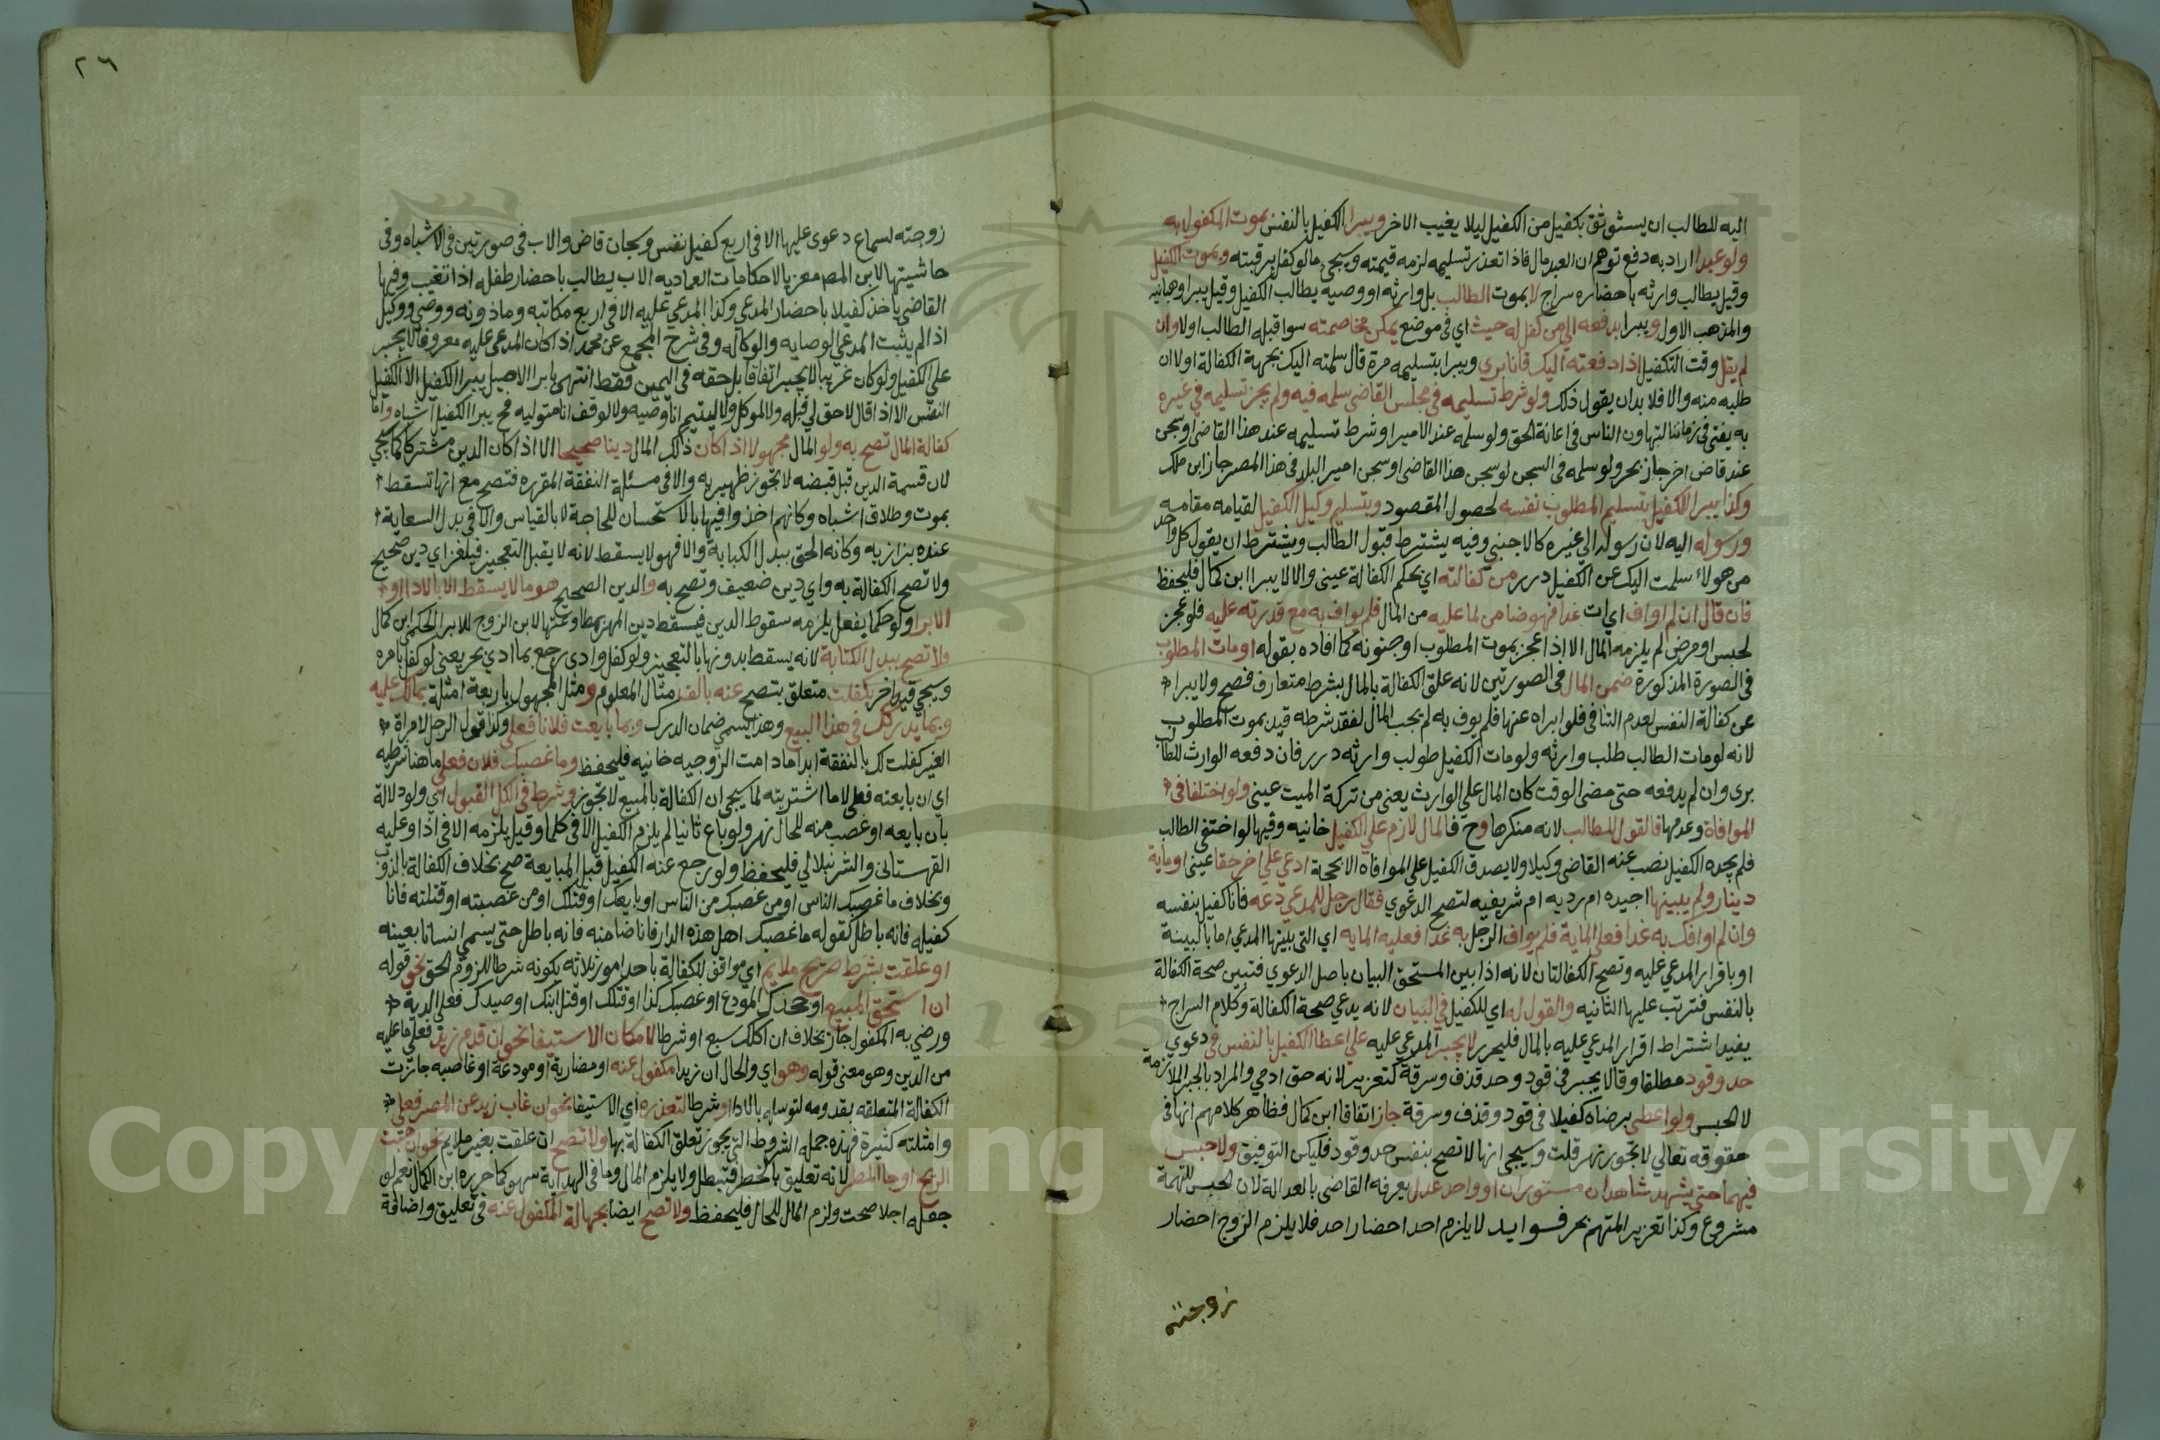 اليه للطالب ان يستوثق بكفيل من الكفيل ليلا يغيب الاخر ويبرا الكفيل بالنفس بموت المكفول به
ولو عبدا اراد به دفع توهم ان العبد مال فاذا تعذر تسليمه لزمه قيمته وسيجي مالو كفل برقبته وبموت الكفيل
وقيل يطالب وارثه باحضاره سراج لا بموت الطالب بل وارثه او وصيه يطالب الكفيل وقيل يبرا وهبانيه
والمذهب الاول ويبرا بدفعه الي من كفل له حيث اي في موضع يمكن مخاصمته سوا قبله الطالب اولا وان
لم يقل وقت التكفيل اذا دفعته اليك فانا بري ويبرا بتسليمه مرة قال سلمته اليك بجهة الكفالة اولا ان
طلبه منه والا فلا بدان يقول ذلك ولو شرط تسليمه في مجلس القاضي سلمه فيه ولم يجز تسليمه في غيره
به يفتي في زماننا لتهاون الناس في اعانة الحق ولو سلمه عند الامير او شرط تسليمه عند هذا القاضي او سجن
عند قاض اخر جاز بحر ولو سلمه في السجن لو سجن هذا القاضي او سجن امير البلد في هذا المصر جاز ابن ملك
وكذا يبرا الكفيل بتسليم المطلوب نفسه لحصول المقصود وبتسليم وكيل الكفيل لقيامه مقامه
ورسوله اليه لان رسوله الي غيره كالاجنبي وفيه يشترط قبول الطالب ويشترط ان يقول كل واحد
من هولاء سلمت اليك عن الكفيل درر من كفالته اي بحكم الكفالة عيني والا لا يبرا ابن كمال فليحفظ
فان قال ان لم اواف اي ات غدا فهو ضامن لما عليه من المال فلم يواف به مع قدرته عليه فلو عجز
لحبس او مرض لم يلزمه المال الا اذا عجز بموت المطلوب او جنونه كما افاده بقوله او مات المطلوب
في الصورة المذكورة ضمن المال في الصورتين لانه علق الكفالة بالمال بشرط متعارف فصح ولا يبرا
عن كفالة النفس لعدم التنافي فلو ابراه عنها فلم يوف به لم يجب المال لفقد شرطه قيد بموت المطلوب
لانه لو مات الطالب طلب وارثه ولو مات الكفيل طولب وارثه درر فان دفعه الوارث للطالب
بري وان لم يدفعه حتى مضى الوقت كان المال علي الوارث يعني من تركة الميت عيني ولو اختلفا في
الموافاة وعدمها فالقول للطالب لانه منكرها وح فالمال لازم علي الكفيل خانيه وفيها لو اختفى الطالب
فلم يجده الكفيل نصب عنه القاضي وكيلا ولا يصدق الكفيل علي الموافاه الا بحجة ادعي علي اخر حقا عيني او ماية
دينار ولم يبينها اجيده ام رديه ام شريفيه لتصح الدعوي فقال رجل للمدعي دعه فانا كفيل بنفسه
وان لم اوافك به غدا فعلي الماية فلم يواف الرجل به غدا فعليه المايه اي التي بينها المدعي اما بالبينة
او باقرار المدعي عليه وتصح الكفالتان لانه اذا بين المستحق البيان باصل الدعوي فتبين صحة الكفالة
بالنفس فترتب عليها الثانيه والقول له اي للكفيل في البيان لانه يدعي صحة الكفالة وكلام السراج
يفيد اشتراط اقرار المدعي عليه بالمال فليحرر لا يجبر المدعي عليه علي اعطا الكفيل بالنفس في دعوي
حد وقود مطلقا وقالا يجبر في قود وحد قذف وسرقة كتعزير لانه حق ادمي والمراد بالجبر الملازمة
لا الحبس ولو اعطى برضاه كفيلا في قود وقذف وسرقة جاز اتفاقا ابن كمال فظاهر كلامهم انها في
حقوقه تعالي لا تجوز نهر قلت وسيجي انها لا تصح بنفس حد وقود فليكن التوفيق ولا حبس
فيهما حتى يشهد شاهدان مستوران او واحد عدل يعرفه القاضي بالعدالة لان الحبس للتهمة
مشروع وكذا تعزير المتهم بحر فوايد لا يلزم احد احضار احد فلا يلزم الزوج احضار
زوجته
٢٦
زوجته لسماع دعوى عليها الا في اربع كفيل نفس وسجان قاض والاب في صورتين في الاشباه وفي
حاشيتها لابن المص معزيا لاحكامات العماديه الاب يطالب باحضار طفله اذا تغيب وفيها
القاضي ياخذ كفيلا باحضار المدعي وكذا المدعي عليه الا في اربع مكاتبه وماذونه ووصي ووكيل
اذ الم يثبت المدعي الوصايه والوكاله وفي شرح المجمع عن محمد اذ اكان المدعي عليه معروفا لا يجبر
علي الكفيل ولو كان غريبا لا يجبر اتفاقا بل حقه في اليمين فقط انتهى بابرا الاصيل يبرا الكفيل الا كفيل
النفس الا اذا قال لا حق لي قبله ولا لموكلي ولا ليتيم انا وصيه ولا لوقف انا متوليه فح يبرا الكفيل اشباه واما
كفالة المال تصح به ولو المال مجهولا اذ اكان ذلك المال دينا صحيحا الا اذ اكان الدين مشتركا كما سيجي
لان قسمة الدين قبل قبضه لا تجوز ظهيريه والا في مسئلة النفقة المقرره فتصح مع انها تسقط
بموت وطلاق اشباه وكانهم اخذوا فيها بالاستحسان للحاجة لا بالقياس والا في بدل السعاية
عنده بزازيه وكانه الحق ببدل الكتابة والا فهو لا يسقط لانه لا يقبل التعجيز فيلغز اي دين صحيح
ولا تصح الكفالة به واي دين ضعيف وتصح به والدين الصحيح هو مالا يسقط الا بالادا او
الابرا ولو حكما بفعل يلزمه سقوط الدين فيسقط دين المهر بمطاوعتها لابن الزوج للابرا الحكمي ابن كمال
ولا تصح ببدل الكتابة لانه يسقط بدونها بالتعجيز ولو كفل وادى رجع بما ادي بحر يعني لو كفل بامره
وسيجي قيد اخر بكفلت متعلق بتصح عنه بالف مثال المعلوم ومثل المجهول باربعة امثلة بمالك عليه
وبما يدركك في هذا البيع وهذا يسمي ضمان الدرك وبما بايعت فلانا فعلي وكذا قول الرجل لامراة
الغير كفلت لك بالنفقة ابدا مادامت الزوجيه خانيه فليحفظ وما غصبك فلان فعلي ما هنا شرطيه
اي ان بايعته فعلي لا ما اشتريته لما سيجي ان الكفالة بالمبيع لا تجوز وشرط في الكل القبول اي ولو دلالة
بان بايعه او غصب منه للحال نهر ولو باع ثانيا لم يلزم الكفيل الا في كلما وقيل يلزمه الا في اذا وعليه
القهستاني والشرنبلالي فليحفظ ولو رجع عنه الكفيل قبل المبايعة صح بخلاف الكفالة بالذوب
وبخلاف ما غصبك الناس او من غصبك من الناس او بايعك او قتلك او من غصبته او قتلته فانا
كفيله فانه باطل كقوله ما غصبك اهل هذه الدار فانا ضامنه فانه باطل حتى يسمي انسانا بعينه
او علقت بشرط صريح ملايم اي موافق للكفالة باحد امور ثلاثه بكونه شرطا للزوم الحق نحو قوله
ان استحق المبيع او جحدك المودع او غصبك كذا او قتلك او قتل ابنك او صيدك فعلي الدية
ورضي به المكفول جاز بخلاف ان اكلك سبع او شرطا لامكان الاستيفا نحو ان قدم زيد فعلي ما عليه
من الدين وهو معنى قوله وهو اي والحال ان زيدا مكفول عنه او مضاربه او مودعه او غاصبه جازت
الكفالة المتعلقه بقدومه لتوسله بالادا او شرطا لتعذره اي الاستيفا نحو ان غاب زيد عن المصر فعلي
وامثلته كثيرة فهذه جملة الشروط التي يجوز تعلق الكفالة بها ولا تصح ان علقت بغير ملايم نحو ان هبت
الريح او جا المطر لانه تعليق بالخطر فتبطل ولا يلزم المال وما في الهداية سهو كما حرره ابن الكمال نعم لو
جعله اجلا صحت ولزم المال للحال فليحفظ ولا تصح ايضا بجهالة المكفول عنه في تعليق واضافة
Copyright © King Saud University
195